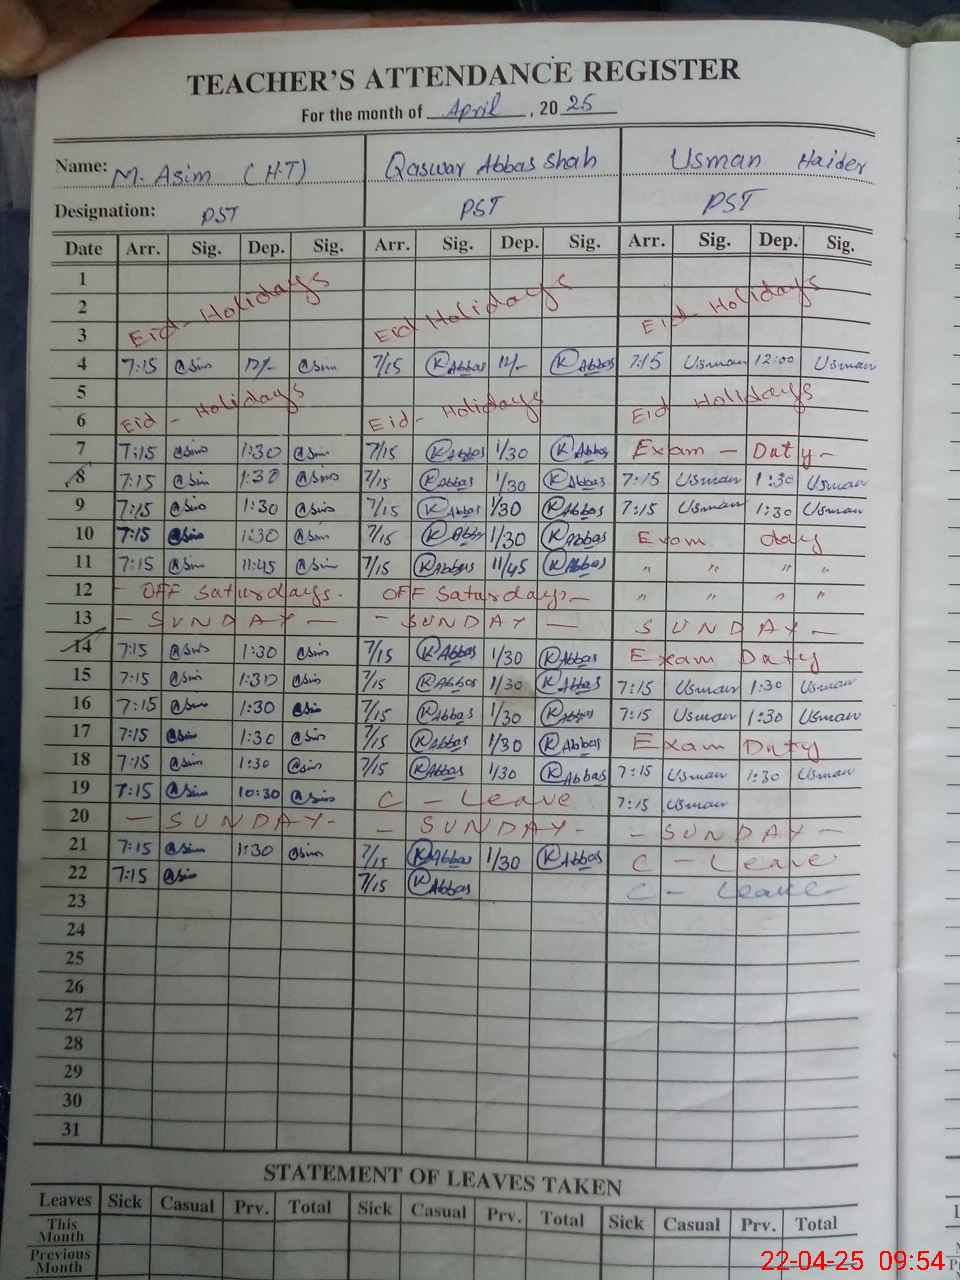 TEACHER'S ATTENDANCE REGISTER
For the month of April, 2025
Name: M. Asim (H.T) Qaswar Abbas Shah Usman Haider
Designation: PST PST PST
Date Arr. Sig. Dep. Sig. Arr. Sig. Dep. Sig. Arr. Sig. Dep. Sig.
1
2
3 Eid-Holidays Eid Holidays Eid-Holidays
4 7:15 @sim 12/- @sim 7/15 K Abbas 12/- K Abbas 7:15 Usman 12:00 Usman
5
6 Eid - Holidays Eid - Holidays Eid Holidays
7 7:15 @sim 1:30 @sim 7/15 K Abbas 1/30 K Abbas Exam - Duty -
8 7:15 @sim 1:30 @sim 7/15 K Abbas 1/30 K Abbas 7:15 Usman 1:30 Usman
9 7:15 @sim 1:30 @sim 7/15 K Abbas 1/30 K Abbas 7:15 Usman 1:30 Usman
10 7:15 @sim 1:30 @sim 7/15 K Abbas 1/30 K Abbas Exam duty
11 7:15 @sim 11:45 @sim 7/15 K Abbas 11/45 K Abbas " " " "
12 - OFF Saturdays. - OFF Saturdays - " " " "
13 - SUNDAY - - SUNDAY - SUNDAY -
14 7:15 @sim 1:30 @sim 7/15 K Abbas 1/30 K Abbas Exam Duty
15 7:15 @sim 1:30 @sim 7/15 K Abbas 1/30 K Abbas 7:15 Usman 1:30 Usman
16 7:15 @sim 1:30 @sim 7/15 K Abbas 1/30 K Abbas 7:15 Usman 1:30 Usman
17 7:15 @sim 1:30 @sim 7/15 K Abbas 1/30 K Abbas Exam Duty
18 7:15 @sim 1:30 @sim 7/15 K Abbas 1/30 K Abbas 7:15 Usman 1:30 Usman
19 7:15 @sim 10:30 @sim C - Leave 7:15 Usman
20 - SUNDAY - - SUNDAY - - SUNDAY -
21 7:15 @sim 1:30 @sim 7/15 K Abbas 1/30 K Abbas C - Leave
22 7:15 @sim 7/15 K Abbas C - Leave
23
24
25
26
27
28
29
30
31
STATEMENT OF LEAVES TAKEN
Leaves Sick Casual Prv. Total Sick Casual Prv. Total Sick Casual Prv. Total
This Month
Previous Month
22-04-25 09:54